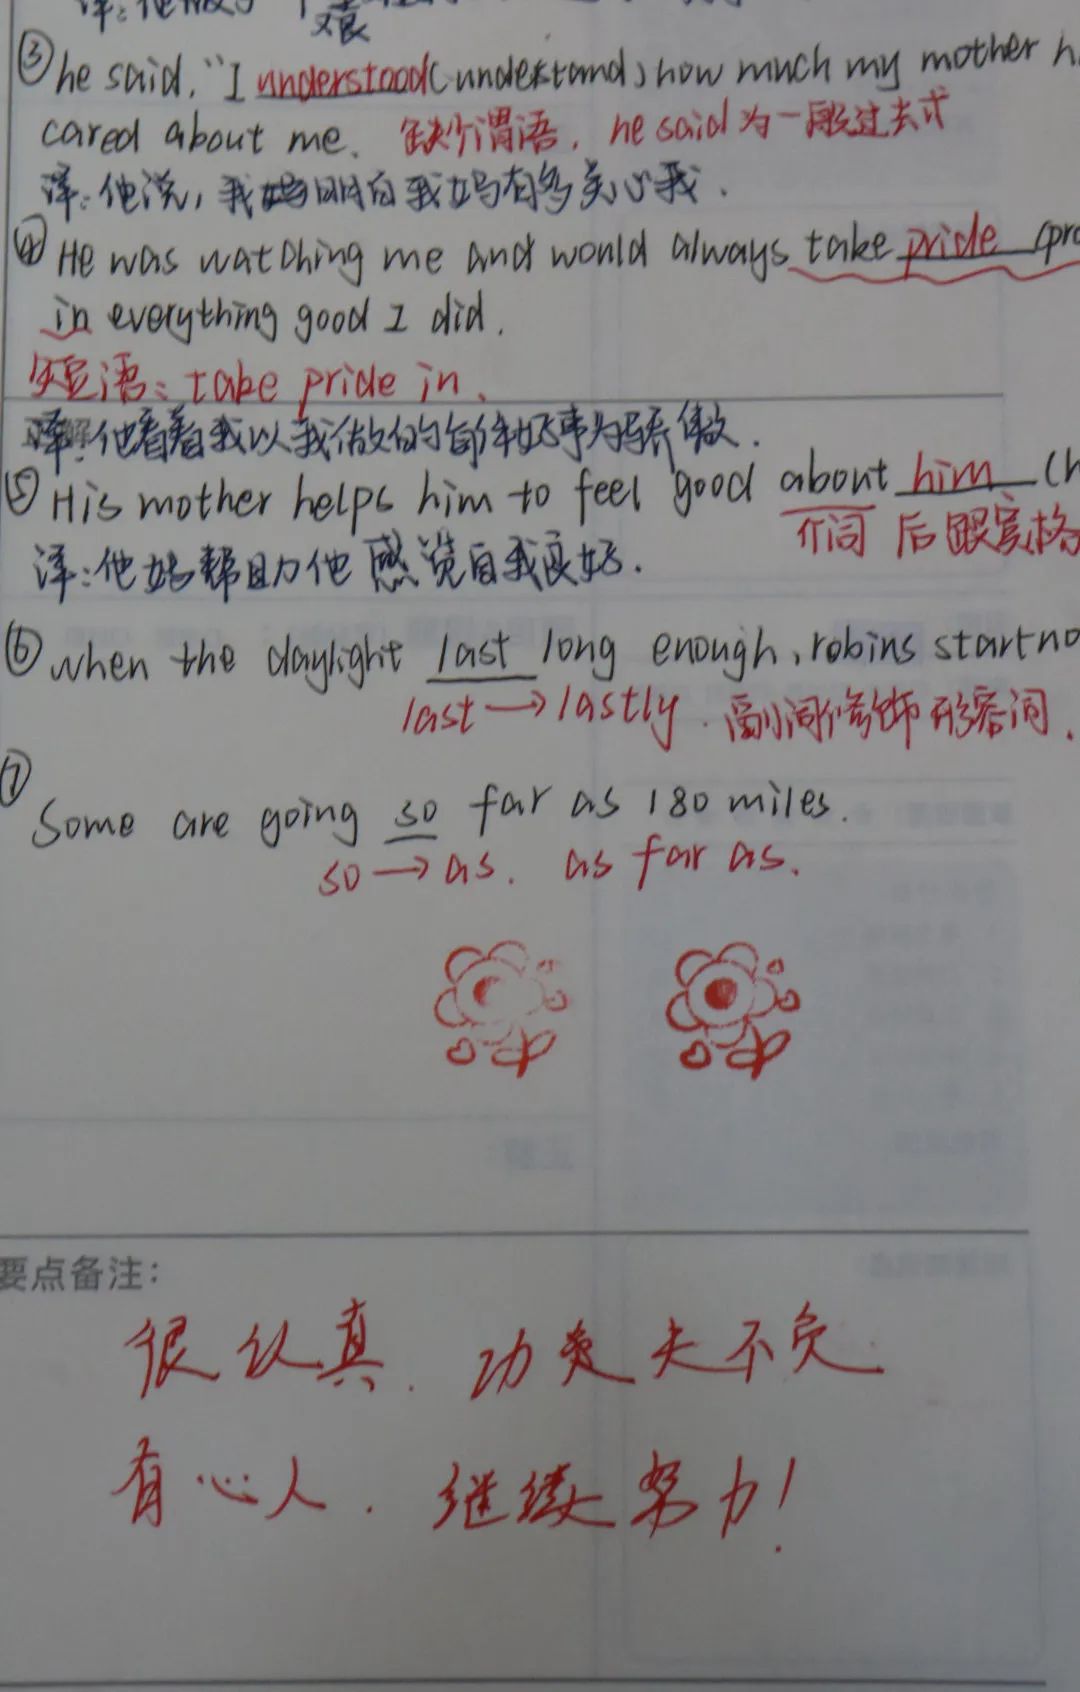 ③ he said, "I understood (understand) how much my mother h
cared about me. 缺个谓语, he said 为一般过去式
译: 他说, 我妈明白我妈有多关心我.
④ He was watching me and would always take pride (pro
in everything good I did.
短语: take pride in.
译: 他看着我以我做的每件好事为骄傲.
⑤ His mother helps him to feel good about him (h
介词 后跟宾格
译: 他妈帮助他感觉自我良好.
⑥ when the daylight last long enough, robins start no
last → lastly. 副词修饰形容词.
⑦
Some are going so far as 180 miles.
so → as. as far as.
要点备注:
很认真. 功夫不负
有心人. 继续努力!